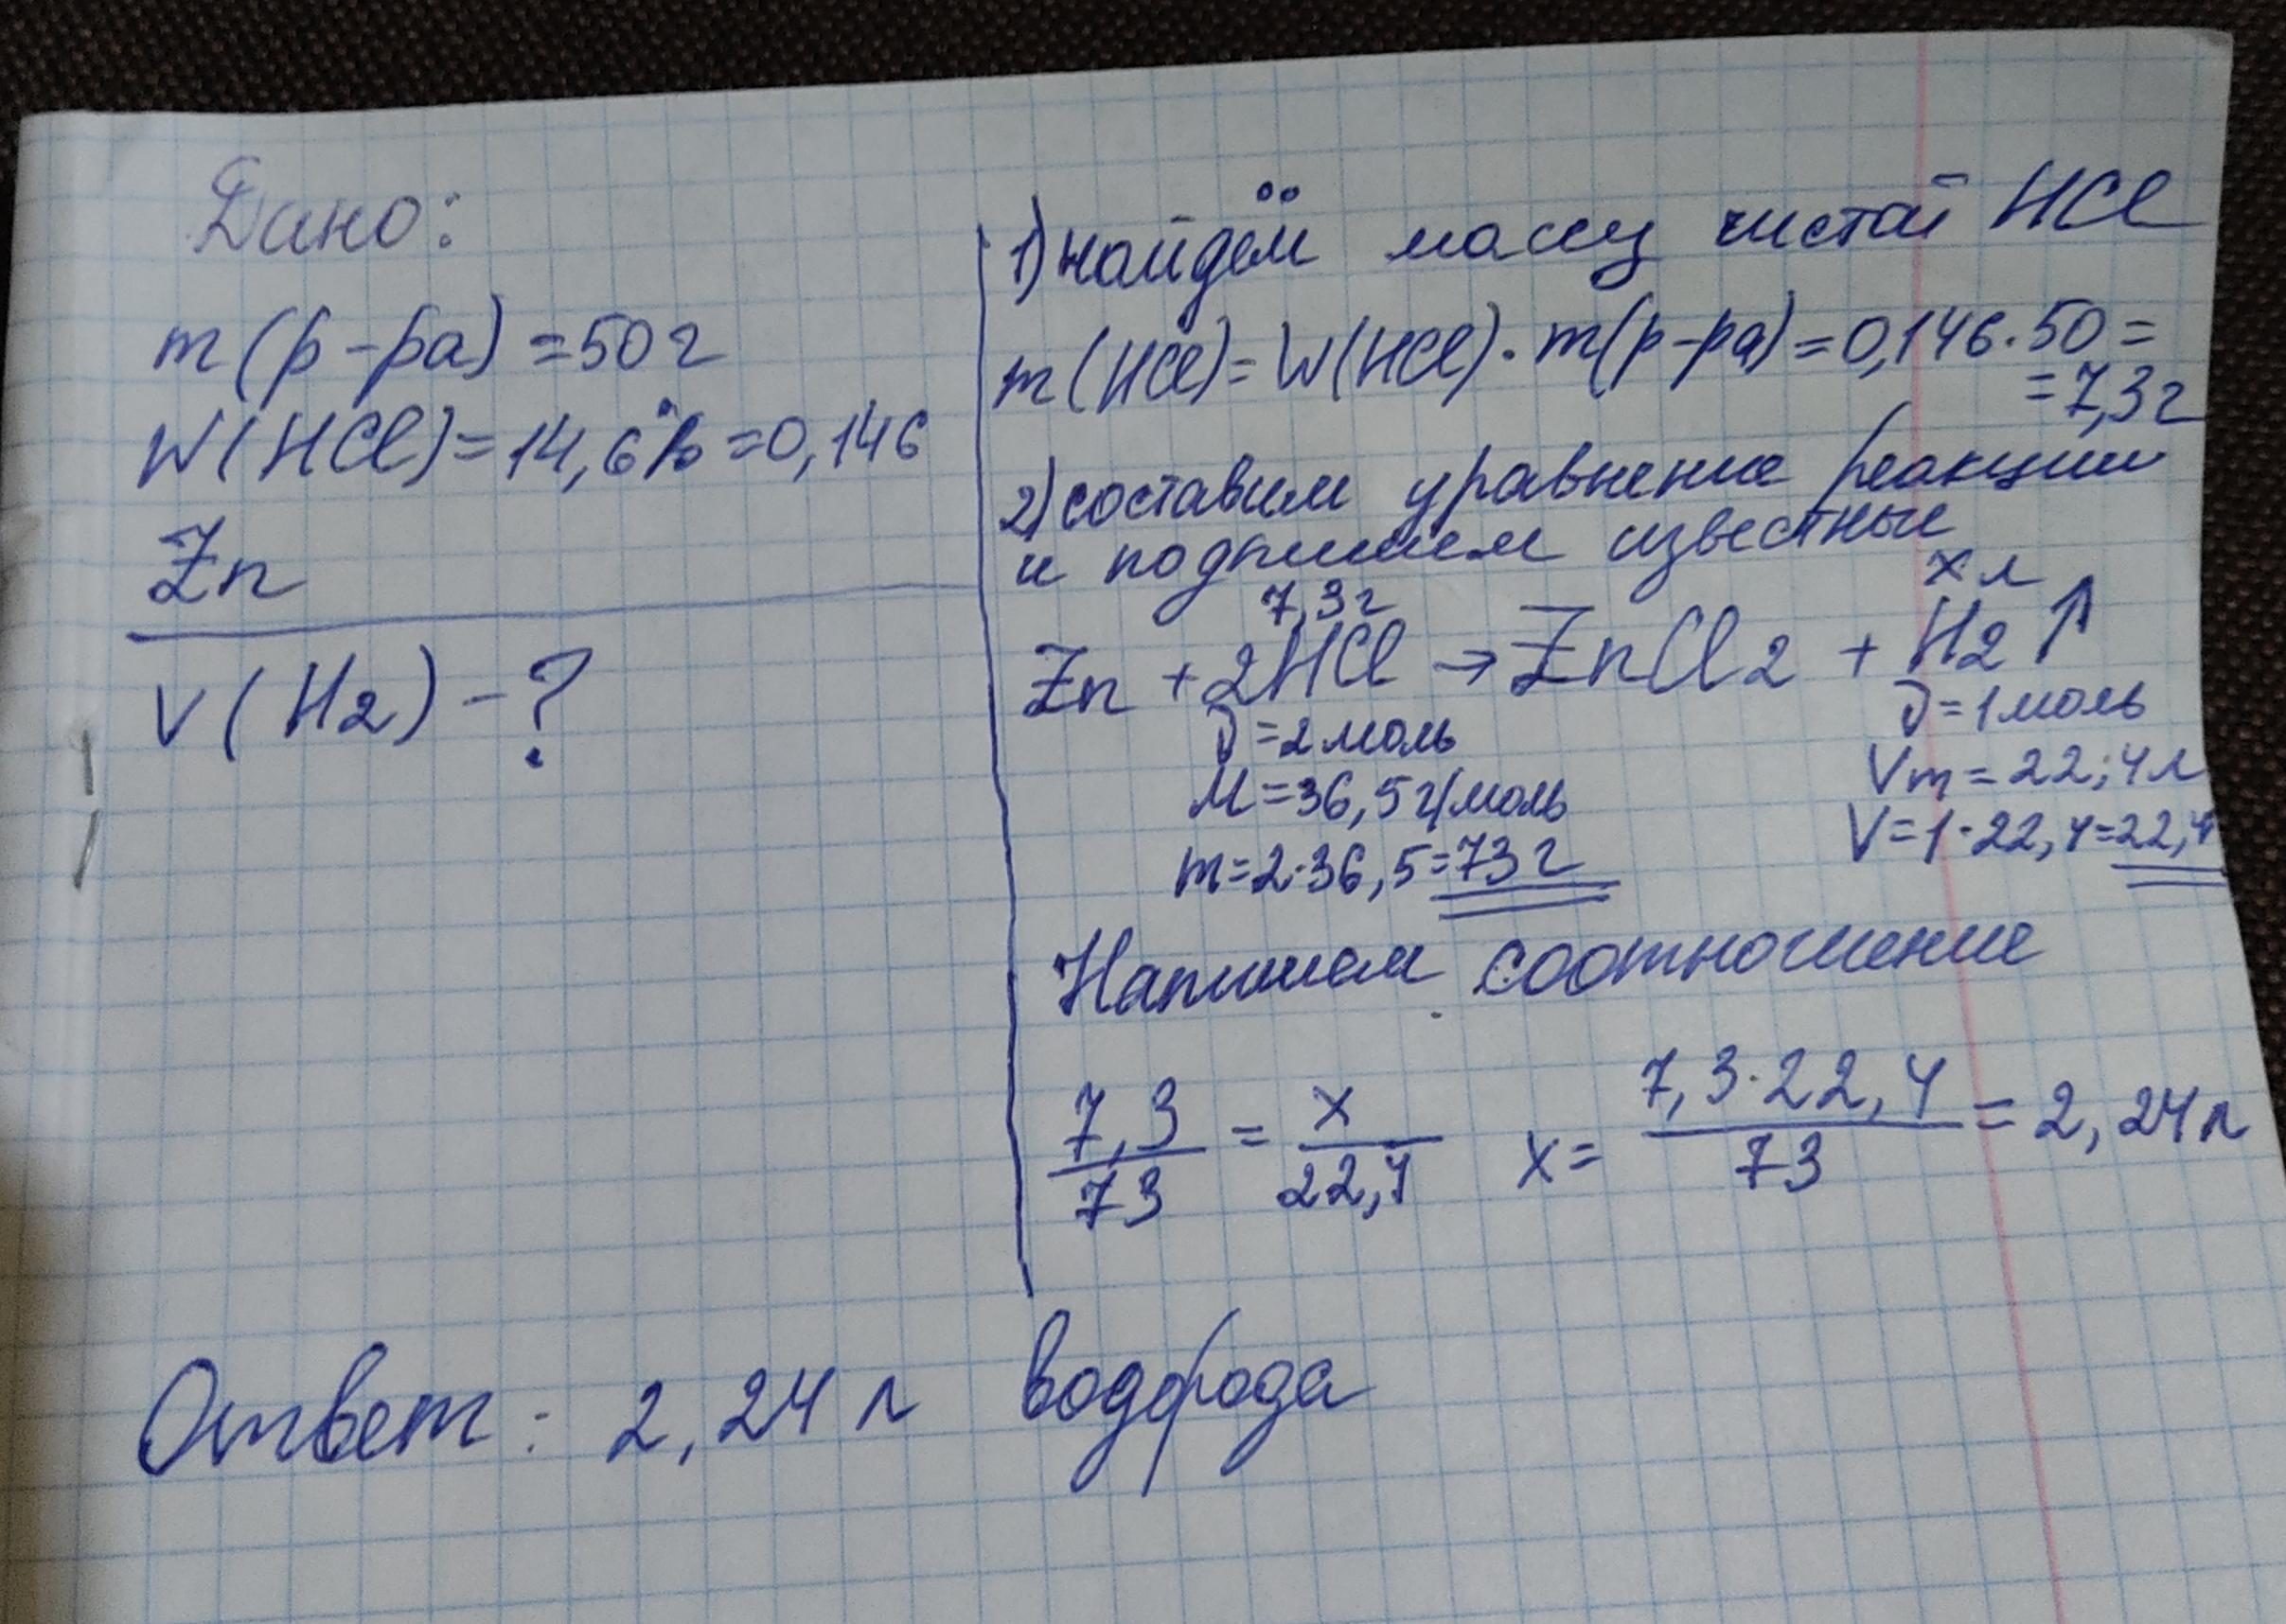 Дано:
m(р-ра) = 50 г
W(HCl) = 14,6% = 0,146
Zn
V(H2) - ?
1) найдём массу чистой HCl
m(HCl) = W(HCl) · m(р-ра) = 0,146 · 50 =
= 7,3 г
2) составим уравнение реакции
и подпишем известные
7,3 г x л
Zn + 2HCl → ZnCl2 + H2 ↑
ν = 2 моль ν = 1 моль
M = 36,5 г/моль Vm = 22,4 л
m = 2·36,5 = 73 г V = 1·22,4 = 22,4
Напишем соотношение
7,3/73 = x/22,4 x = 7,3·22,4/73 = 2,24 л
Ответ: 2,24 л водорода